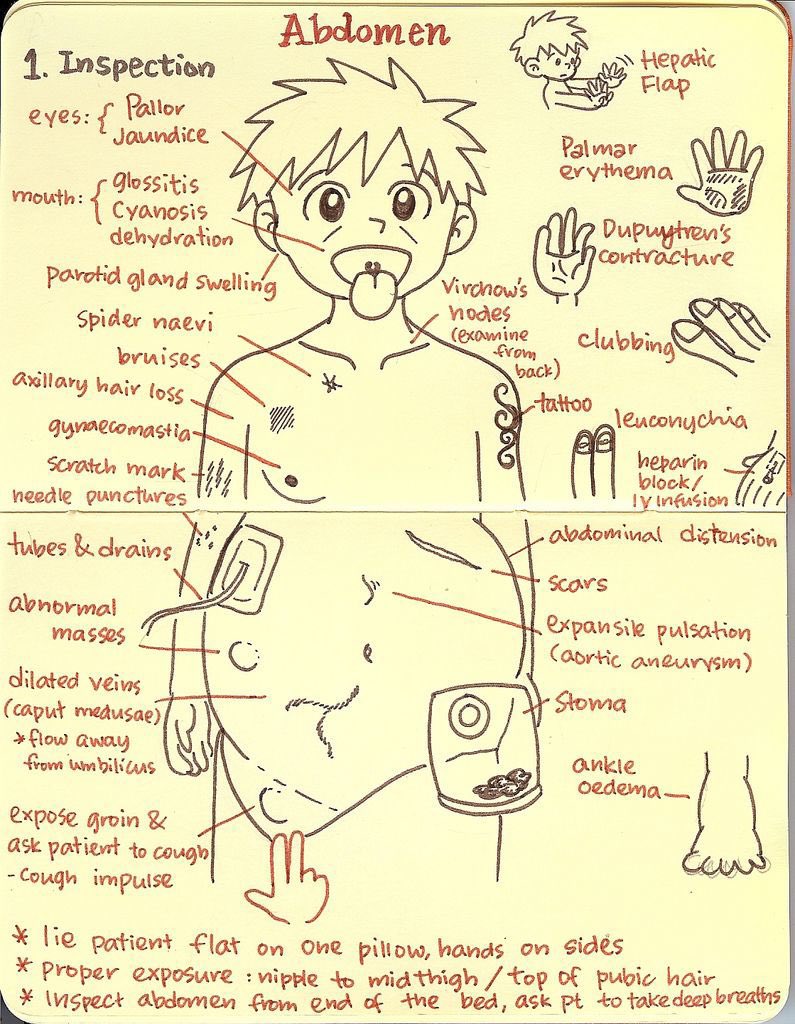 Abdomen
1. Inspection
eyes: { Pallor
Jaundice
mouth: { glossitis
Cyanosis
dehydration
parotid gland swelling
spider naevi
bruises
axillary hair loss
gynaecomastia
scratch mark
needle punctures
tubes & drains
abnormal
masses
dilated veins
(caput medusae)
*flow away
from umbilicus
expose groin &
ask patient to cough
- cough impulse
Hepatic
Flap
Palmar
erythema
Dupuytren's
contracture
Virchow's
nodes
(examine
from
back)
clubbing
tattoo
leuconychia
heparin
block/
IV infusion
abdominal distension
scars
expansile pulsation
(aortic aneurysm)
Stoma
ankle
oedema
* lie patient flat on one pillow, hands on sides
* proper exposure : nipple to midthigh / top of pubic hair
* Inspect abdomen from end of the bed, ask pt to take deep breaths